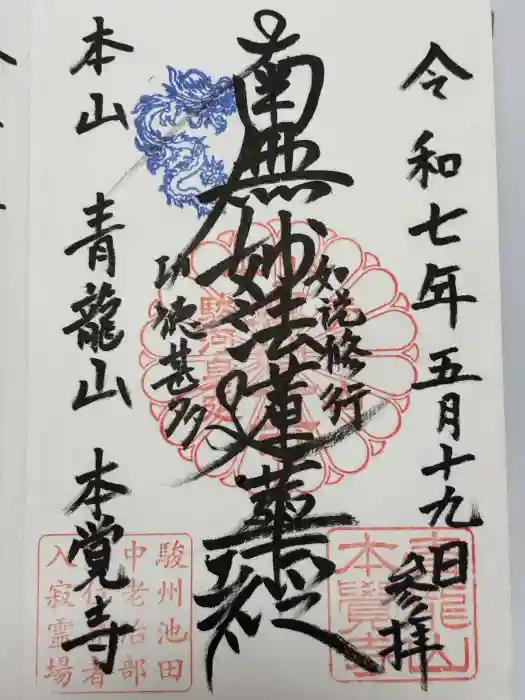 令和七年五月十九日参拝
如説修行
南無妙法蓮華経
功徳甚多
本山 青龍山 本覚寺
青龍山
本覺寺
駿州池田
中老治部
入寂霊場